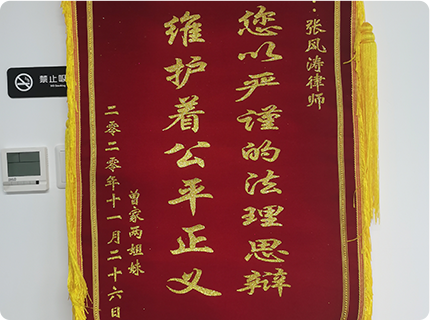 ：张风涛律师
您以严谨的法理思辩
维护着公平正义
曾家两姐妹
二零二零年十一月二十六日
禁止吸